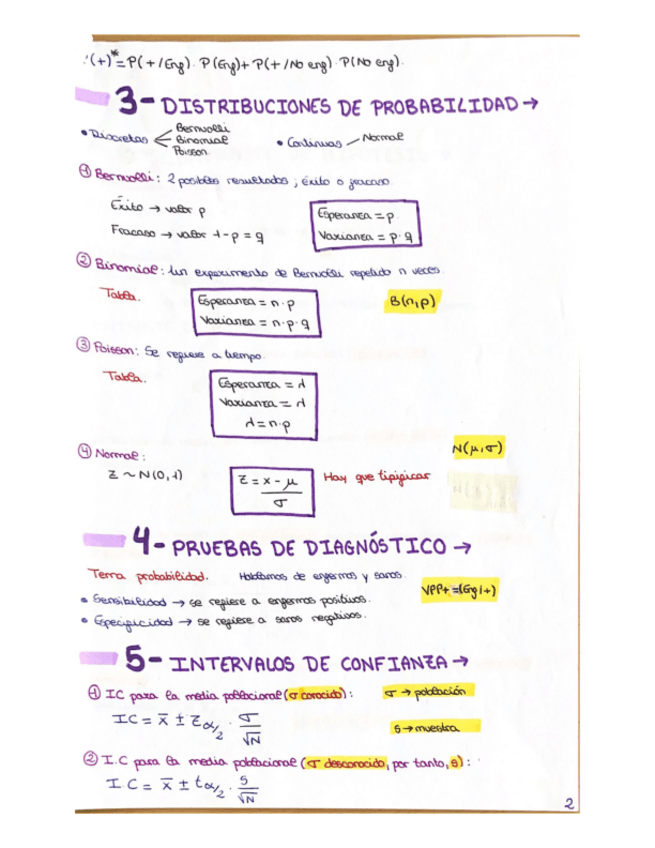 P(+)* = P(+/Eng) · P(Eng) + P(+/No eng) · P(No eng).
3- DISTRIBUCIONES DE PROBABILIDAD →
• Discretas < Bernoulli
Binomial
Poisson.
• Continuas — Normal
① Bernoulli: 2 posibles resultados; éxito o fracaso.
Éxito → valor p
Fracaso → valor 1-p = q
Esperanza = p
Varianza = p·q
② Binomial: Un experimento de Bernoulli repetido n veces.
Tabla.
Esperanza = n·p
Varianza = n·p·q
B(n,p)
③ Poisson: Se refiere a tiempo.
Tabla.
Esperanza = λ
Varianza = λ
λ = n·p
④ Normal:
N(μ,σ)
Z ~ N(0,1)
Z = x - μ / σ
Hay que tipificar
4- PRUEBAS DE DIAGNÓSTICO →
Tema probabilidad. Hablamos de enfermos y sanos.
VPP+ = (Eng/+)
• Sensibilidad → se refiere a enfermos positivos.
• Especificidad → se refiere a sanos negativos.
5- INTERVALOS DE CONFIANZA →
① IC para la media poblacional (σ conocido):
σ → población
IC = x̄ ± Zα/2 · σ/√N
s → muestra
② I.C para la media poblacional (σ desconocido, por tanto, s):
I.C = x̄ ± tα/2 · s/√N
2